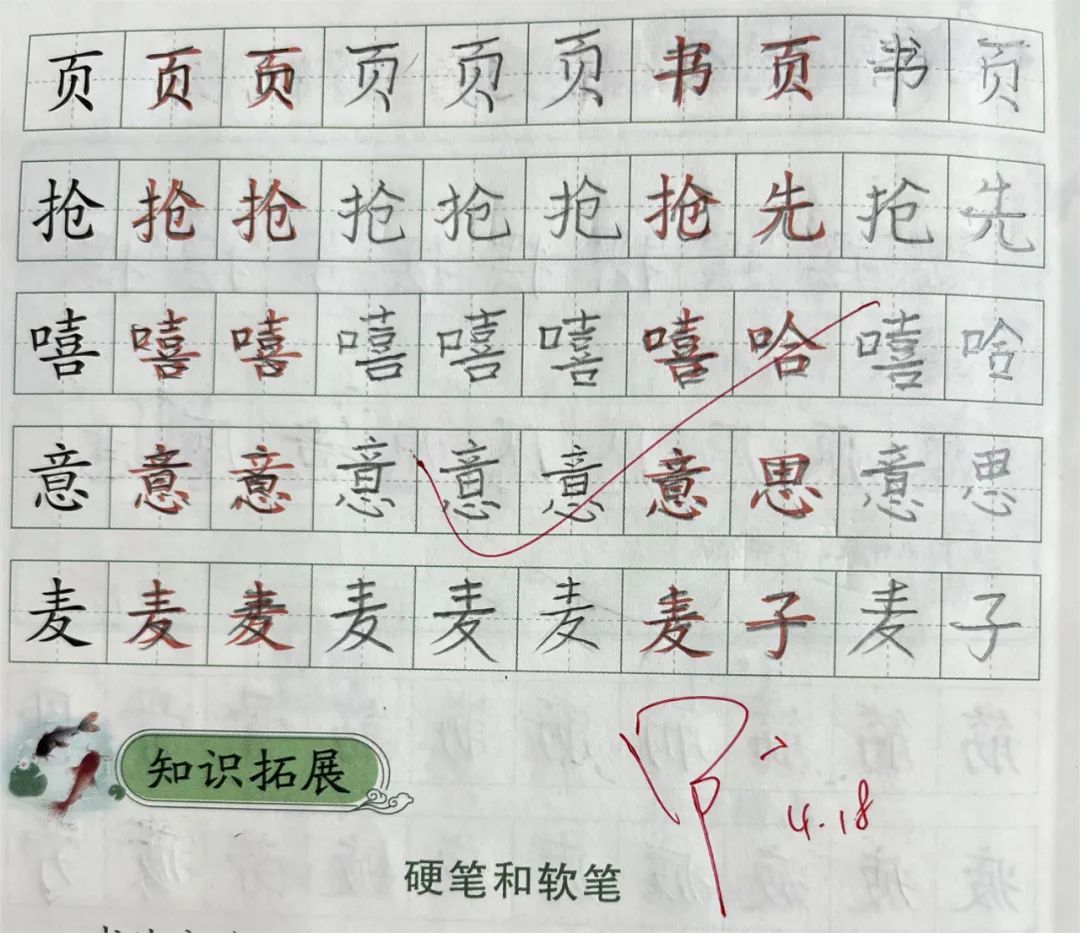 页页页页页页书页书页
抢抢抢抢抢抢抢先抢先
嘻嘻嘻嘻嘻嘻嘻哈嘻哈
意意意意意意意思意思
麦麦麦麦麦麦麦子麦子
4.18
知识拓展
硬笔和软笔